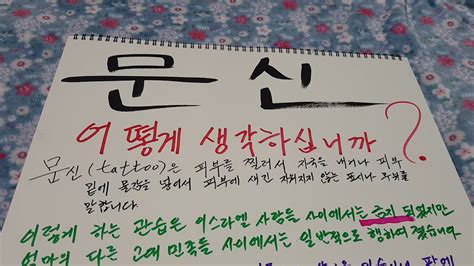 문신
어떻게 생각하십니까?
문신(tattoo)은 피부를 찔러서 자국을 내거나 피부
밑에 물감을 넣어서 피부에 새긴 지워지지 않는 표시나 무늬를
말합니다.
이렇게 하는 관습은 이스라엘 사람들 사이에서는 금지 되었지만
얼마의 다른 고대 민족들 사이에서는 일반적으로 행하여 졌습니다